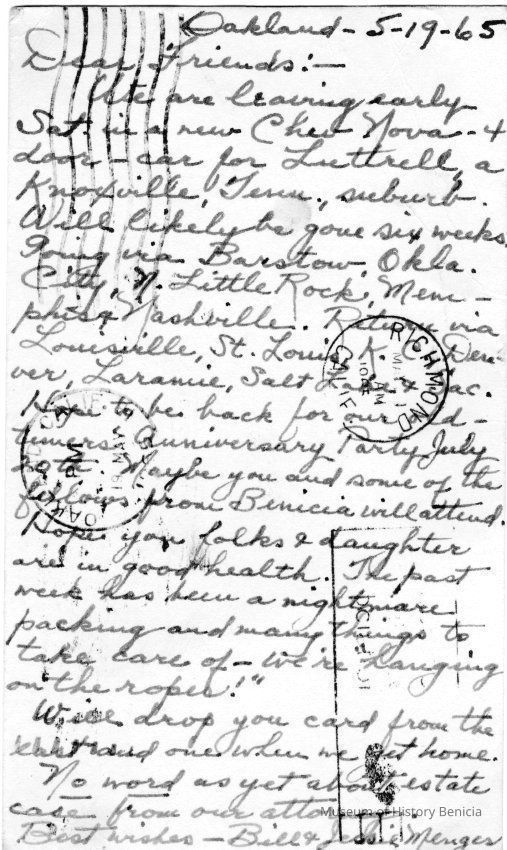 Oakland - 5-19-65
Dear Friends:-
We are leaving early
Sat. in a new Chev Nova - 4
door - car for Luttrell, a
Knoxville, Tenn., suburb.
Will likely be gone six weeks.
Going via Barstow, Okla.
City, N. Little Rock, Mem-
phis & Nashville. Return via
Louisville, St. Louis, K. Den-
ver, Laramie, Salt Lake & Sac.
Hope to be back for our old-
timers Anniversary Party July
Maybe you and some of the
fellows from Benicia will attend.
Hope you folks & daughter
are in good health. The past
week has been a nightmare
packing and many things to
take care of - We're hanging
on the ropes!"
Will drop you card from the
east and one when we get home.
No word as yet about estate
case from our atto
Best wishes - Bill & Jessie Menger
RICHMOND
CALIF
MAY
PM
OAKLAND CALIF
PM
19 MAY
Museum of History Benicia